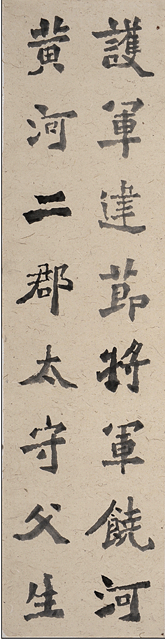 護軍建節將軍饒河
黃河二郡太守父生